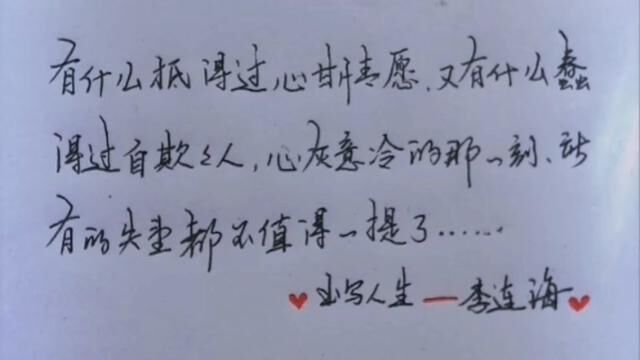 有什么抵得过心甘情愿、又有什么蠢
得过自欺欺人,心灰意冷的那一刻、所
有的失望都不值得一提了……
书写人生—李连海